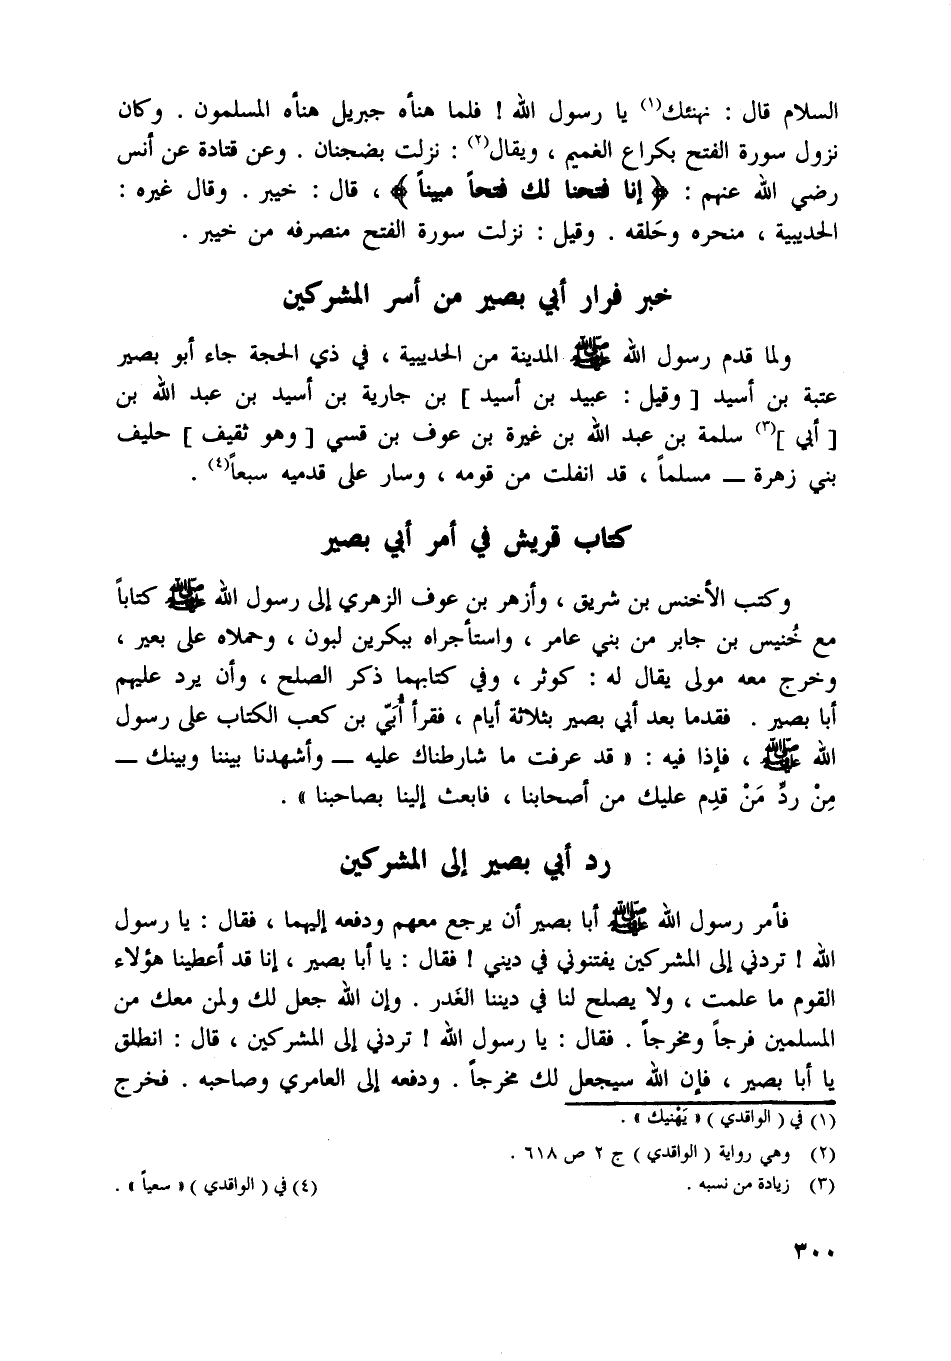 السلام قال : نهنئك(١) يا رسول الله ! فلما هنأه جبريل هنأه المسلمون . وكان
نزول سورة الفتح بكراع الغميم ، ويقال(٢) : نزلت بضجنان . وعن قتادة عن أنس
رضي الله عنهم : ﴿ إنا فتحنا لك فتحاً مبيناً ﴾ ، قال : خيبر . وقال غيره :
الحديبية ، منحره وحَلقه . وقيل : نزلت سورة الفتح منصرفه من خيبر .
خبر فرار أبي بصير من أسر المشركين
ولما قدم رسول الله ﷺ المدينة من الحديبية ، في ذي الحجة جاء أبو بصير
عتبة بن أسيد [ وقيل : عبيد بن أسيد ] بن جارية بن أسيد بن عبد الله بن
[ أبي ](٣) سلمة بن عبد الله بن غيرة بن عوف بن قسي [ وهو ثقيف ] حليف
بني زهرة — مسلماً ، قد انفلت من قومه ، وسار على قدميه سبعاً(٤) .
كتاب قريش في أمر أبي بصير
وكتب الأخنس بن شريق ، وأزهر بن عوف الزهري إلى رسول الله ﷺ كتاباً
مع خُنيس بن جابر من بني عامر ، واستأجراه ببكرين لبون ، وحملاه على بعير ،
وخرج معه مولى يقال له : كوثر ، وفي كتابهما ذكر الصلح ، وأن يرد عليهم
أبا بصير . فقدما بعد أبي بصير بثلاثة أيام ، فقرأ أُبَيّ بن كعب الكتاب على رسول
الله ﷺ ، فإذا فيه : « قد عرفت ما شارطناك عليه — وأشهدنا بيننا وبينك —
مِنْ ردِّ مَنْ قدِم عليك من أصحابنا ، فابعث إلينا بصاحبنا » .
رد أبي بصير إلى المشركين
فأمر رسول الله ﷺ أبا بصير أن يرجع معهم ودفعه إليهما ، فقال : يا رسول
الله ! تردني إلى المشركين يفتنوني في ديني ! فقال : يا أبا بصير ، إنا قد أعطينا هؤلاء
القوم ما علمت ، ولا يصلح لنا في ديننا الغَدر . وإن الله جعل لك ولمن معك من
المسلمين فرجاً ومخرجاً . فقال : يا رسول الله ! تردني إلى المشركين ، قال : انطلق
يا أبا بصير ، فإن الله سيجعل لك مخرجاً . ودفعه إلى العامري وصاحبه . فخرج
(١) في ( الواقدي ) « يَهْنيك » .
(٢) وهي رواية ( الواقدي ) ج ٢ ص ٦١٨ .
(٣) زيادة من نسبه . (٤) في ( الواقدي ) « سعياً » .
٣٠٠